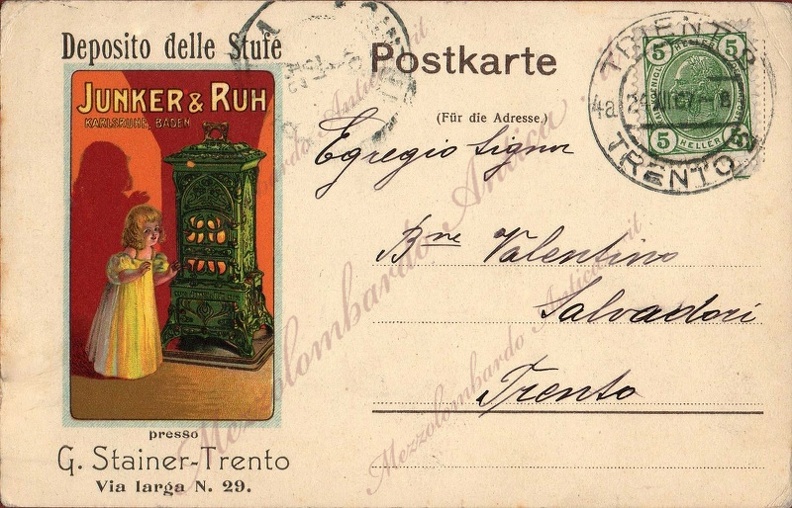 Deposito delle Stufe
JUNKER & RUH
KARLSRUHE, BADEN
presso
G. Stainer-Trento
Via larga N. 29.
Postkarte
(Für die Adresse.)
Egregio Signor
Bne Valentino
Salvadori
Trento
5 5
5 HELLER 5
TRIENT 2
4a 24 XII 07 - 8
TRENTO 2
Mezzolombardo Antica.it
Mezzolombardo Antica.it